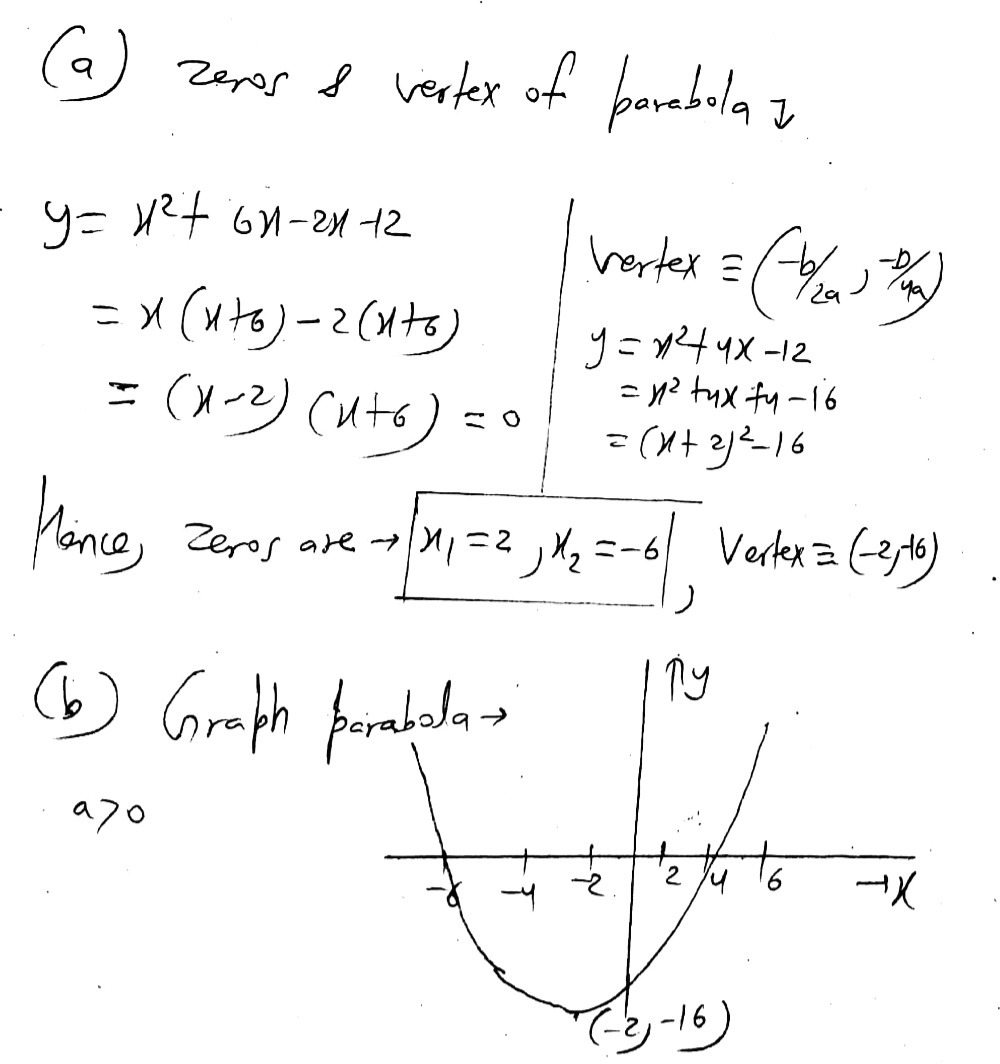 (a) zeros & vertex of parabola ↓
y = x² + 6x - 2x - 12
= x (x+6) - 2 (x+6)
= (x-2) (x+6) = 0
Vertex ≡ (-b/2a, -D/4a)
y = x² + 4x - 12
= x² + 4x + 4 - 16
= (x + 2)² - 16
Hence, zeros are → x₁ = 2, x₂ = -6, Vertex ≡ (-2, -16)
(b) Graph parabola →
a > 0
↑y
-6 -4 -2 2 4 6 → x
(-2, -16)